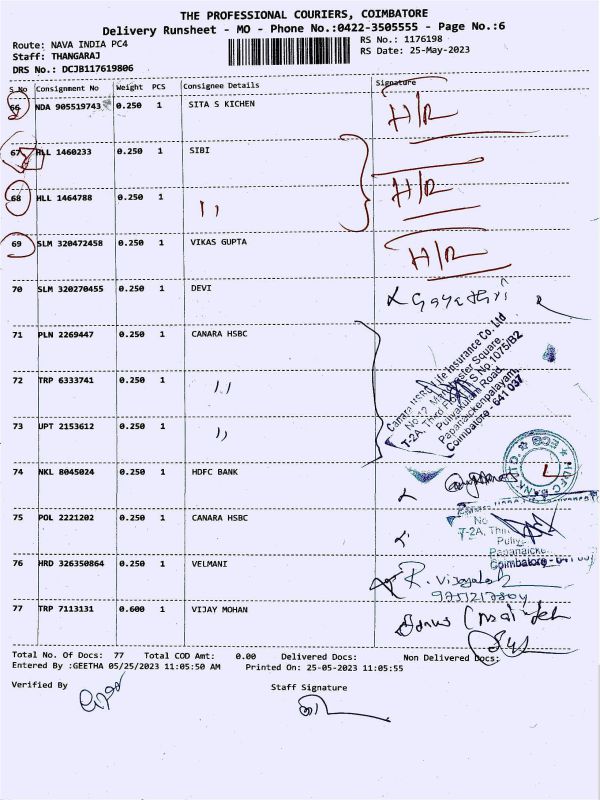 THE PROFESSIONAL COURIERS, COIMBATORE
Delivery Runsheet - MO - Phone No.:0422-3505555 - Page No.:6
Route: NAVA INDIA PC4
RS No.: 1176198
Staff: THANGARAJ
RS Date: 25-May-2023
DRS No.: DCJB117619806
S No Consignment No Weight PCS Consignee Details Signature
66 NDA 905519743 0.250 1 SITA S KICHEN H/R
67 HLL 1460233 0.250 1 SIBI
68 HLL 1464788 0.250 1 ,, H/R
69 SLM 320472458 0.250 1 VIKAS GUPTA H/R
70 SLM 320270455 0.250 1 DEVI Gayathri
71 PLN 2269447 0.250 1 CANARA HSBC
72 TRP 6333741 0.250 1 ,,
73 UPT 2153612 0.250 1 ,,
Canara HSBC Life Insurance Co. Ltd
T-2A, Third Floor
Puliyakulam Road,
Papanaickenpalayam,
Coimbatore - 641 037
74 NKL 8045024 0.250 1 HDFC BANK
HDFC BANK LTD.
75 POL 2221202 0.250 1 CANARA HSBC
No
T-2A,
Coimbatore - 641
76 HRD 326350864 0.250 1 VELMANI R.
77 TRP 7113131 0.600 1 VIJAY MOHAN
Total No. Of Docs: 77 Total COD Amt: 0.00 Delivered Docs: Non Delivered Docs:
Entered By :GEETHA 05/25/2023 11:05:50 AM Printed On: 25-05-2023 11:05:55
Verified By
Staff Signature